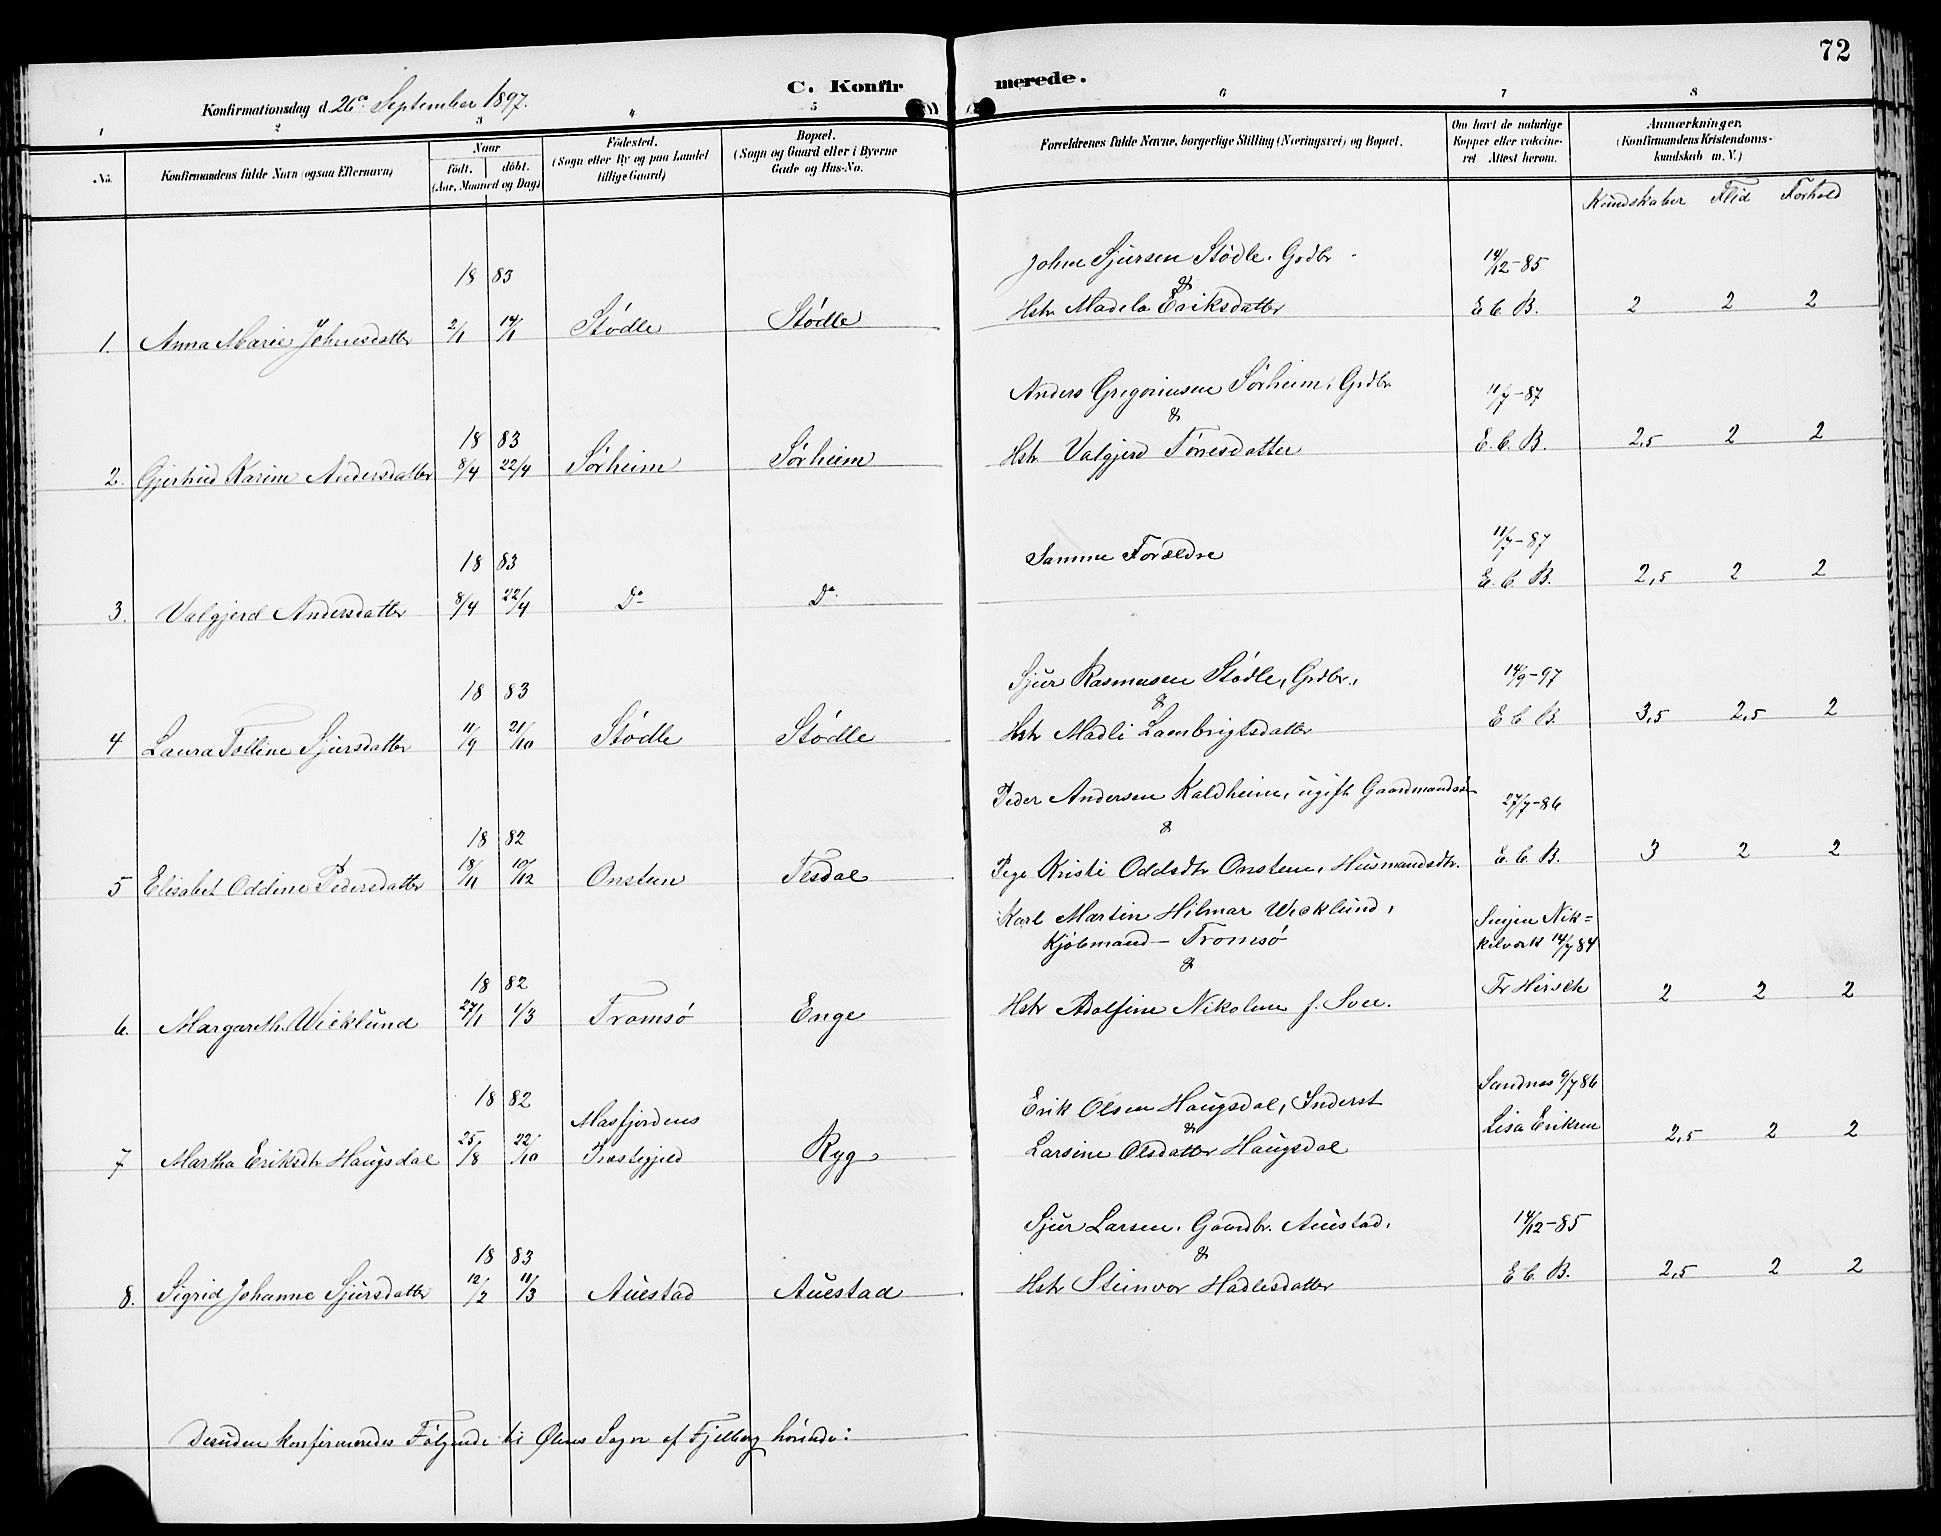 72
C. Konfirmerede.
Konfirmationsdag d. 26de September 1897.
1 2 3 4 5 6 7 8
No. Konfirmandens fulde Navn (ogsaa Efternavn) Naar født. døbt. (Aar, Maaned og Dag) Fødested. (Sogn eller By og paa Landet tillige Gaard) Bopæl. (Sogn og Gaard eller i Byerne Gade og Hus-No. Forældrenes fulde Navne, borgerlige Stilling (Næringsvei) og Bopæl. Om havt de naturlige Kopper eller vaccineret Attest herom. Anmærkninger. (Konfirmandens Kristendomskundskab m. V.)
Kundskaber Flid Forhold
18 83 Johne Sjursen Stødle. Grdbr. 14/12-85
&
1. Anna Marie Johnesdatter 2/1 14/1 Stødle Stødle Hstr Madela Eriksdatter E. C. B. 2 2 2
Anders Gregoriusen Sørheim, Grdbr. 11/7-87
18 83 &
2. Gjerthud Karine Andersdatter 8/4 22/4 Sørheim Sørheim Hstr. Valgjerd Tørresdatter E. C. B. 2,5 2 2
18 83 Samme Forældre 11/7-87
3. Valgjerd Andersdatter 8/4 22/4 Do Do. E. C. B. 2,5 2 2
18 83 Sjur Rasmusen Stødle, Grdbr., 14/9-97
&
4 Laura Tolline Sjursdatter 11/9 21/10 Stødle Stødle Hstr Madli Lambrigtsdatter E C B. 3,5 2,5 2
Peder Andersen Kaldheim, ugift Gaardmandssøn 27/7-86
18 82 &
5 Elisabet Oddine Pedersdatter 18/11 10/12 Onsteen Tesdal Pige Kristi Oddsdtr Onsteen, Husmandsdtr. E. C. B. 3 2 2
Karl Martin Hilmar Wicklund, Senjen Nik=
Kjøbmand - Tromsø kelverk 14/7 84
18 82 &
6. Margareth Wicklund 27/1 1/3 Tromsø Enge Hstr Adolfine Nikoline f. Soee. Fr Hirsch 2 2 2
18 82 Masfjordens Erik Olsen Haugsdal, Inderst Sandnes 9/7 86
&
7 Martha Eriksdtr Haugsdal 25/8 22/10 Præstegjeld Ryg Larsine Olsdatter Haugsdal Lisa Eriksen 2,5 2 2
Sjur Larsen. Gaardbr. Auestad. 14/12-85
18 83 &
8. Sigrid Johanne Sjursdatter 12/2 11/3 Auestad Auestad Hstr Steinvor Hadlesdatter E C. B. 2,5 2 2
Desuden konfirmeredes Følgende til Ølens Sogn af Fjelberg hørende: